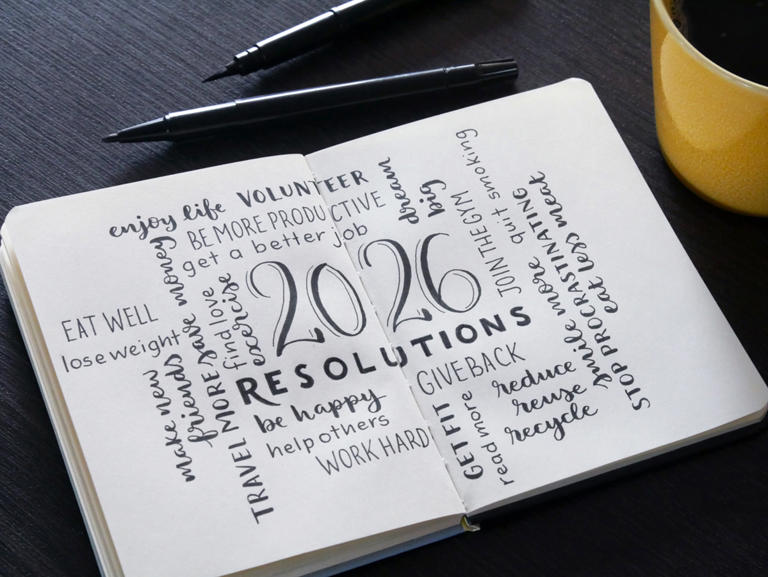 enjoy life
VOLUNTEER
BE MORE PRODUCTIVE
get a better job
dream
big
quit smoking
JOIN THE GYM
2026
RESOLUTIONS
EAT WELL
lose weight
make new
friends
save money
TRAVEL MORE
find love
exercise
be happy
help others
WORK HARD
GIVE BACK
GET FIT
read more
reduce
reuse
recycle
smile more
STOP PROCRASTINATING
eat less meat